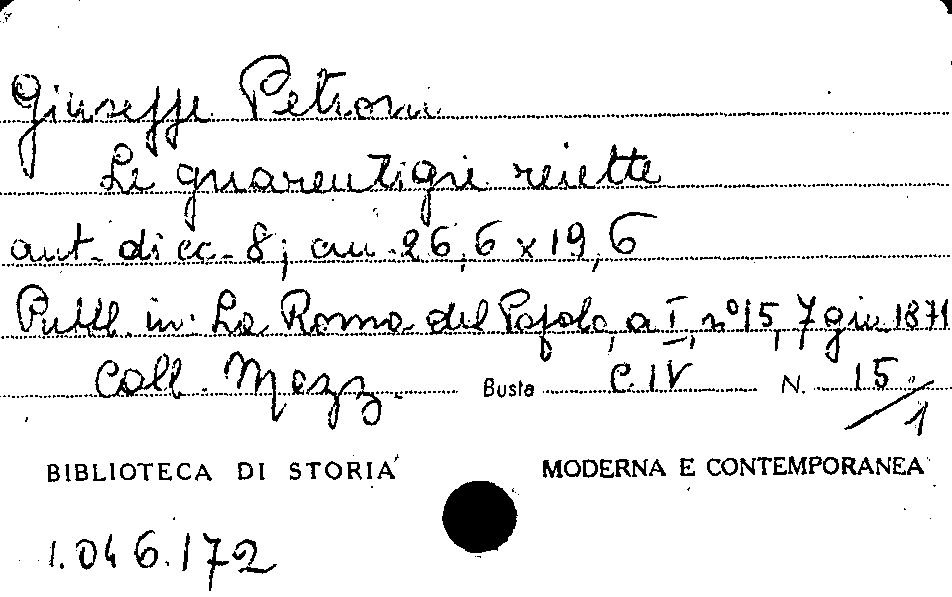 Giuseppe Petroni
Le guarentigie reiette
aut. di cc. 8; cm. 26,6 x 19,6
Pubbl. in: La Roma del Popolo, a. I, n° 15, 7 giu. 1871
Coll. Mezz. Busta C. IV N. 15/1
BIBLIOTECA DI STORIA MODERNA E CONTEMPORANEA
1.046.172